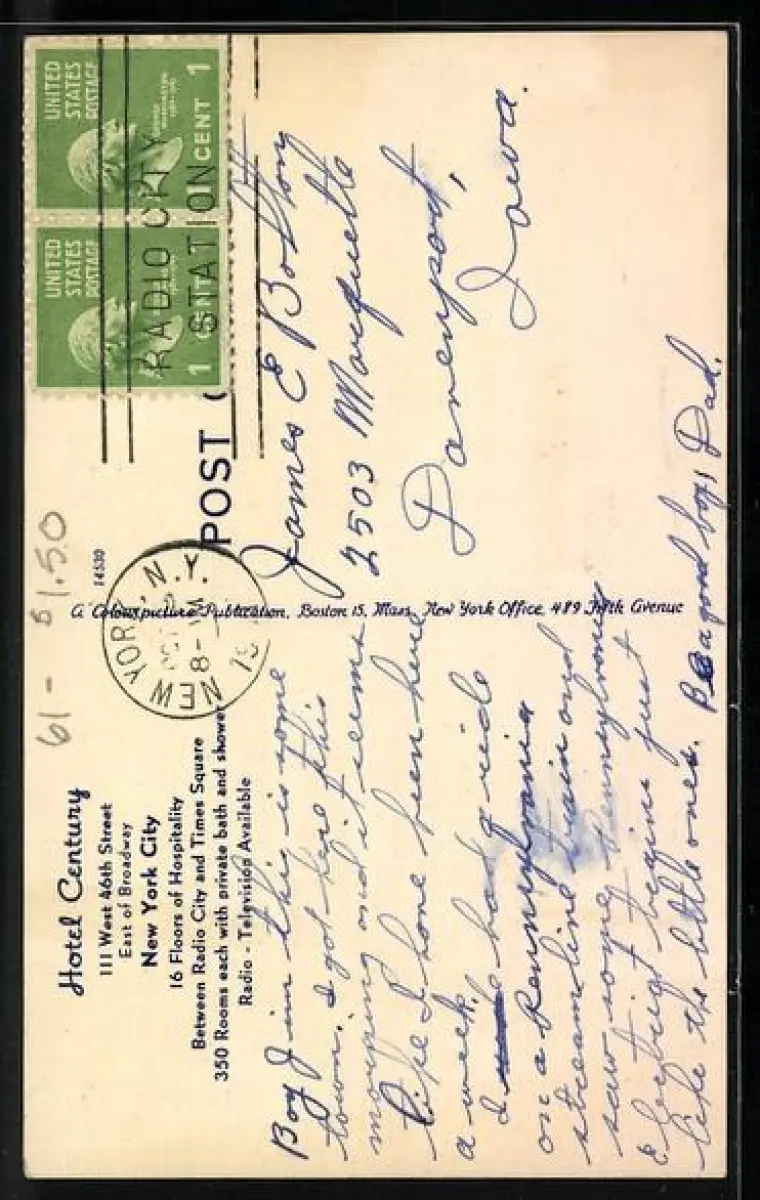 Hotel Century
111 West 46th Street
East of Broadway
New York City
16 Floors of Hospitality
Between Radio City and Times Square
350 Rooms each with private bath and shower
Radio - Television Available
Boy Jim this is some
town. I got here this
morning and it seems
like I have been here
a week.
I had a ride
on a Pennsylvania
streamline train and
saw some Pennsylvania
Electric trains just
like the little ones. Be a good boy, Dad.
61 - $1.50
14530
NEW YORK, N.Y.
8-
A Colourpicture Publication, Boston 15, Mass. New York Office, 489 Fifth Avenue
POST
UNITED
STATES
POSTAGE
1 CENT
UNITED
STATES
POSTAGE
CENT 1
RADIO CITY
STATION
James E Bottory
2503 Marquette
Davenport,
Iowa.